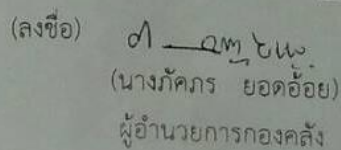 (ลงชื่อ)
(นางภัคภร ยอดอ้อย)
ผู้อำนวยการกองคลัง